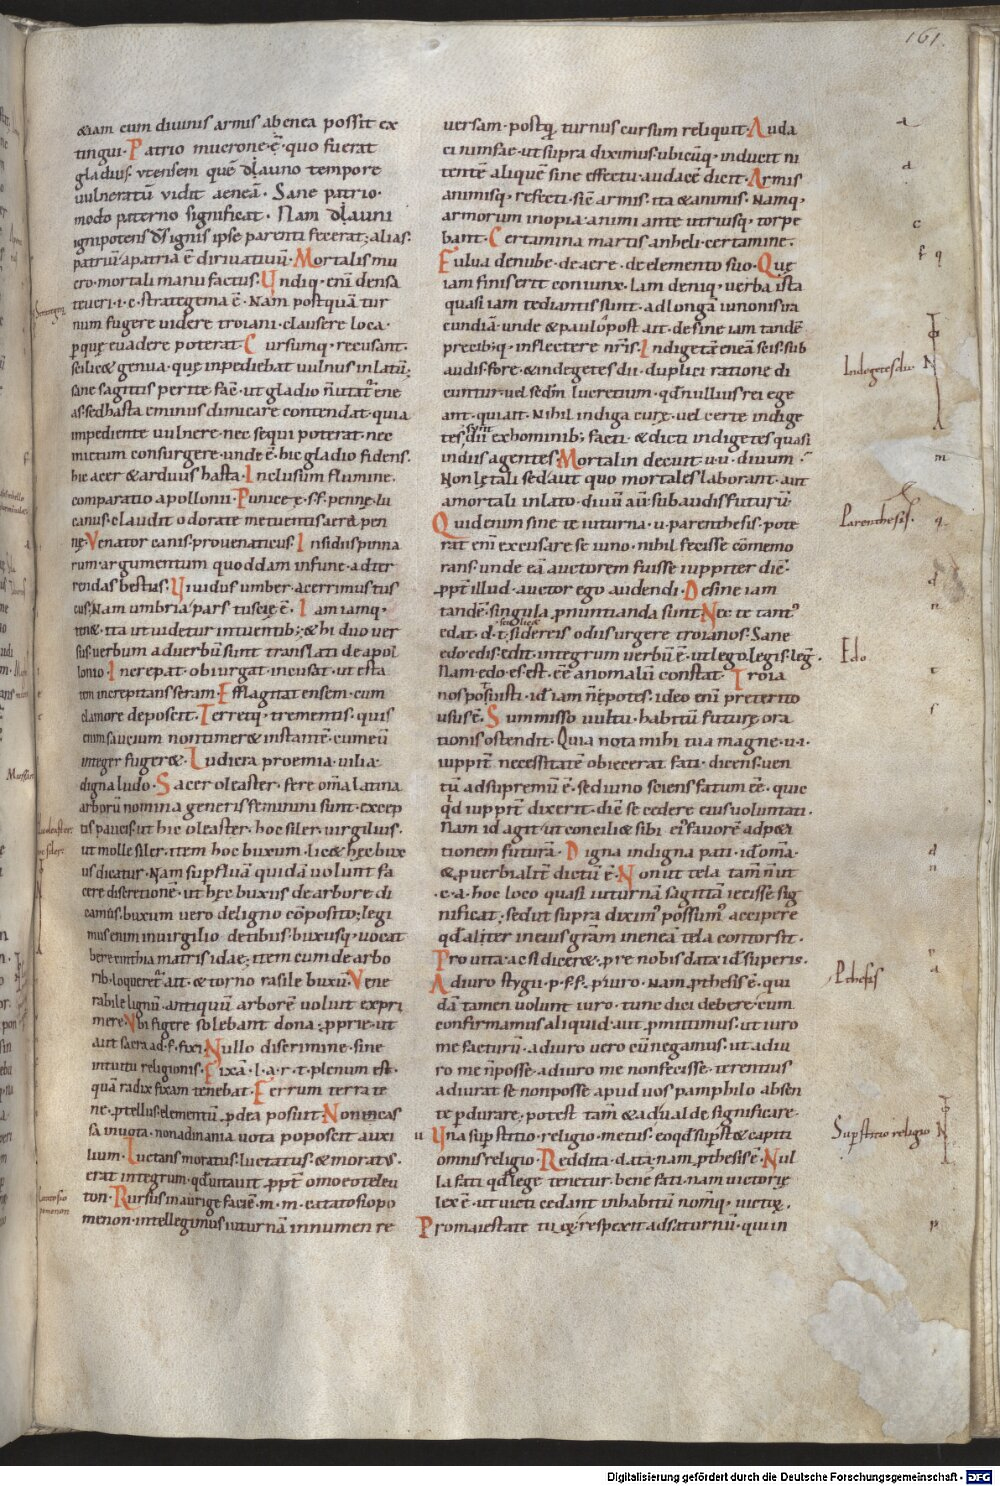 161.
&iam cum diuinis armis ab enea possit ex
tingui· Patrio mucrone·ē· quo fuerat
gladius· vt ensem quē dauno tempore
uulneratū vidit aeneā· Sane patrio·
modo paterno significat· Nam dauni
ignipotens ds ignis ipse parenti fecerat; alias·
patriū a patria ē dirivativū· Mortalis mu
cro· mortali manu factus· Undiq· enī densa
teucri·i·e· strategema ē· Nam postquā tur
num fugere videre troiani· clausere loca·
p quę euadere poterat· Cursumq· recusant·
scilic& genua· quę inpediebat uulnus inlatū;
sane sagittis perite facē· ut gladio
as· sed hasta eminus dimicare contendat· quia
impediente uulnere· nec sequi poterat· nec
mictum consurgere· unde ē· hic gladio fidens·
hic acer & arduus hasta· Inclusum flumine·
comparatio apollonii· Punicę·ę·s·f· pennę· lu
canus· claudit odorate metuentis aera pen
nę· Venator canis· pro uenaticus· Insidiis pinna
rum· argumentum quoddam in fune· ad ter
rendas bestias· Uiuidus umber· acerrimus tus
cus· Nam umbria pars tuscię ē· Iam iamq·
ten&· ita ut videtur intuentib;· & hi duo uer
sus· uerbum ad uerbū sunt translati de apol
lonio· Increpat· obiurgat· incusat· ut esta
tem increpitans seram· Efflagitat ensem· cum
clamore deposcit· Terretq· trementis· quis
enim saucium non timer& instantē· cum eū
integer fuger&· Ludicra· proemia· uilia·
digna ludo· Sacer oleaster· fere om̄a latina
arborū nomina generis feminini sunt· excep
tis paucis· ut hic oleaster· hoc siler· virgilius·
ut molle siler· item hoc buxum· lic& hęc bux
us dicatur· Nam supfluā quidā volunt fa
cere discretionē· ut hęc buxus de arbore di
camus· buxum vero de ligno cōposito; legi
mus enim in uirgilio de tibus· buxusq· uocat
berecinthia matris idae· item cum de arbo
rib· loqueret ait· & torno rasile buxū· Vene
rabile lignū· antiquū arborē voluit expri
mere· Vbi figere solebant dona· pprie· ut
aut sacra ad·f· fixi· Nullo discrimine· sine
intuitu religionis· Fixā·l·a·r·t· plenum est·
quā radix fixam tenebat· Ferrum terra te
ne· p tellus elementū· p dea posuit· Non incas
sa in uota· non ad inania vota poposcit auxi
lium· Luctans moratus· luctatus· & moratus·
erat integrum· qd uitauit ppt omoeoteleu
ton· Rursus in aurige faciē·m·m· catatosiopo
menon· intellegimus iuturnā in numen re
uersam· postq turnus cursum reliquit· Auda
ci nimfae· ut supra diximus· ubicūq· inducit ni
tentē aliquē sine effectu· audacē dicit· Armis
animisq· refecti· sicē armis· ita & animis· Namq·
armorum inopia· animi ante utriusq· torpe
bant· Certamina martis anheli· certamine·
Fulua de nube· de aere· de elemento suo· Quę
iam finis erit coniunx· Iam deniq· uerba ista
quasi iam tediantis sunt· ad longā iunonis ira
cundiā· unde & paulo post ait· desine iam tandē
precib;q· inflectere nr̄is· Indigetē eneā scis· sub
audis· fore· & indegetes dii· duplici ratione di
cuntur· vel scdm̄ lucretium· qd nullius rei ege
ant· quia it· Nihil indiga curę· vel certe indige
tes sunt dii ex hominib; facti· & dicti indigetes quasi
in diis agentes· Mortalin decuit·u·u· diuum·
Non lętali sed aut quo mortales laborant· aut
a mortali inlato· diuū aū· subaudis futurū
Quid enim sine te iuturna·u· parenthesis· pote
rat enī excusare se iuno· nihil fecisse cōmemo
rans· unde eā auctorem fuisse iuppiter dic̄·
ppt illud· auctor ego audendi· Desine iam
tandē· singula pnuntianda sunt· Nec te tant
edat·d·t· sidereis odiis urgere troianos· Sane
edo· edis· edit· integrum uerbū ē· ut lego· legis· legit·
Nam edo· es· est· eē anomalū constat· Troia
nos potuisti· id iam n̄ potes· ideo enī preterito
usus ē· Summisso uultu· habitū futurę ora
tionis ostendit· Quia nota mihi tua magne·u·i·
iuppit necessitatē obiecerat fati· dicens· uen
tū ad supremū ē· sed iuno sciens fatum eē· quic
qd iuppit dixerit· dic̄ se cedere eius voluntati·
Nam id agit ut concili& sibi ei fauorē ad peti
tionem futurā· Digna indigna pati· id om̄a·
& puerbialit dictū ē· Non ut tela tam̄ n̄ ut
·c·a· hoc loco quasi iuturnā sagittā iecisse sig
nificat; sed ut supra dixim possum accipere
qd aliter in eius gr̄am in eneā tela contorsit·
Pro uita· ac si dicer&· pre nobis data id superis·
Adiuro stygii·p·f·f· p iuro· Nam pthesis ē· qui
dā tamen volunt iuro· tunc dici debere· cum
confirmamus aliquid· aut pmittimus· ut iuro
me facturū· adiuro uero cū negamus· ut adiu
ro me n̄ posse· adiuro me non fecisse· terentius
adiurat se non posse apud uos pamphilo absen
te pdurare; potest tam̄ & ad ualde significare·
Una supstitio· religio· metus· eo qd supst& capiti
omnis religio· Reddita· data· nam pthesis ē· Nul
la fati qd lege tenetur· bene fati· nam uictorię
lex ē· ut uicti cedant in habitū nomq· uictoę·
Pro maiestate tuorę· respexit ad saturnū· qui in
Indegetes dii·
Parenthesis·
Edo
Pthesis
Supstitio religio
Digitalisierung gefördert durch die Deutsche Forschungsgemeinschaft - DFG